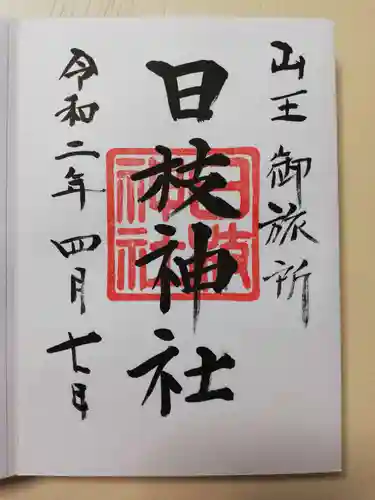 山王 御旅所
日枝神社
日枝神社
令和二年 四月 七日